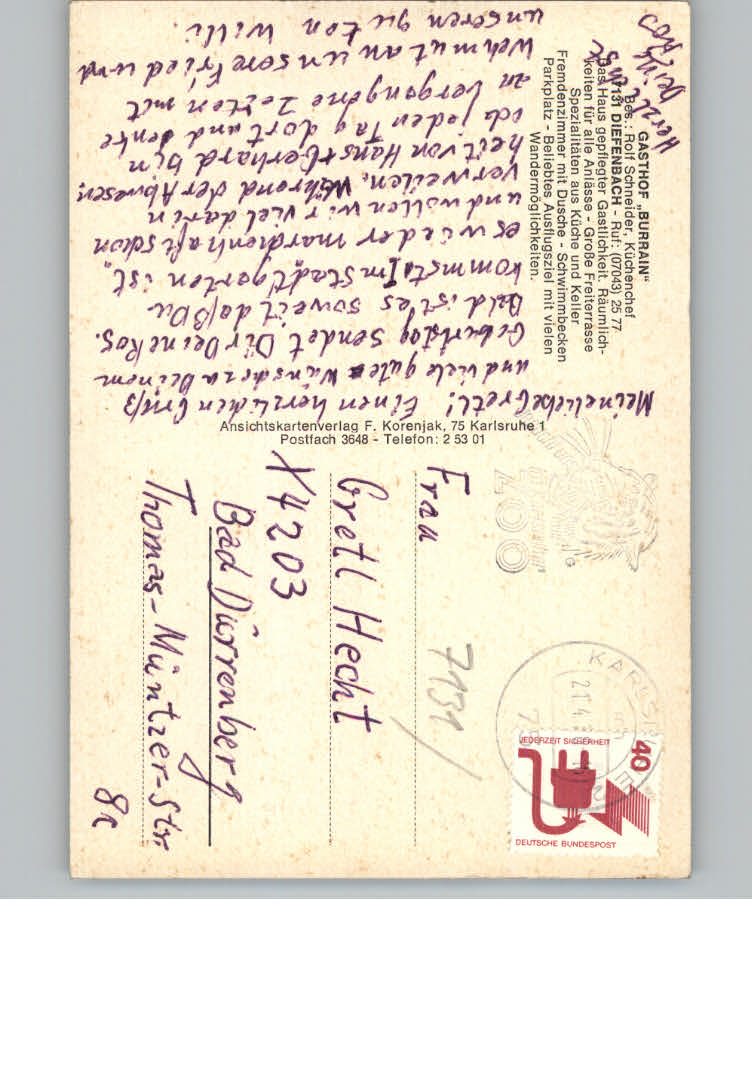 GASTHOF „BURRAIN“
Bes.: Rolf Schneider, Küchenchef
7131 DIEFENBACH - Ruf: (07043) 25 77
Das Haus gepflegter Gastlichkeit. Räumlich-
keiten für alle Anlässe - Große Freiterrasse
Spezialitäten aus Küche und Keller
Fremdenzimmer mit Dusche - Schwimmbecken
Parkplatz - Beliebtes Ausflugsziel mit vielen
Wandermöglichkeiten.
Meine liebe Gretl! Einen herzlichen Gruß
und viele gute Wünsche zu Deinem
Geburtstag sendet Dir Deine Ros.
Bald ist es soweit daß Du
kommst. Im Stadtgarten ist
es wieder märchenhaft schön
und wollen wir viel darin
verweilen. Während der Abwesen
heit von Hans + Gerhard bin
ich jeden Tag dort und denke
an vergangene Zeiten mit
Wehmut an unsere Fried und
unseren guten Willi.
Herzl.
Deine Ros
Ansichtskartenverlag F. Korenjak, 75 Karlsruhe 1
Postfach 3648 - Telefon: 2 53 01
ZOO
KARLSR
21.4.
75
40
JEDERZEIT SICHERHEIT
DEUTSCHE BUNDESPOST
7131
Frau
Gretl Hecht
X4203
Bad Dürrenberg
Thomas-Müntzer-Str
8c